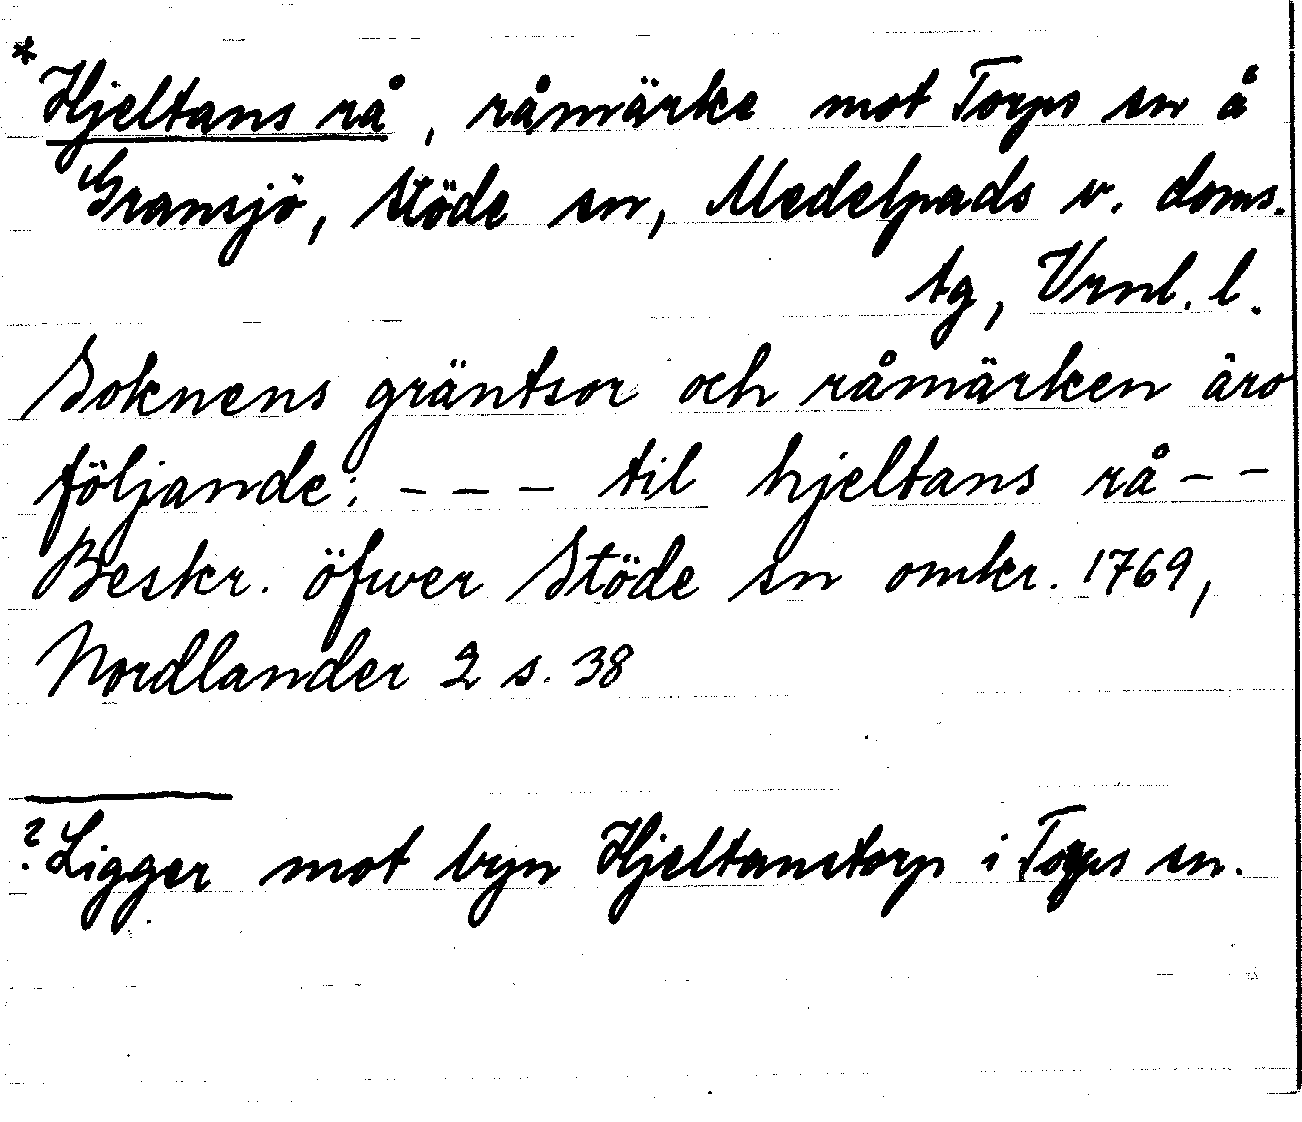 *Hjeltans rå, råmärke mot Torps sn å
Gransjö, Stöde sn, Medelpads v. doms.
tg, Vrnl. l.
Soknens gräntsor och råmärken äro
följande: – – – til hjeltans rå – –
Beskr. öfwer Stöde sn omkr. 1769,
Nordlander 2 s. 38
? Ligger mot byn Hjeltanstorp i Torps sn.